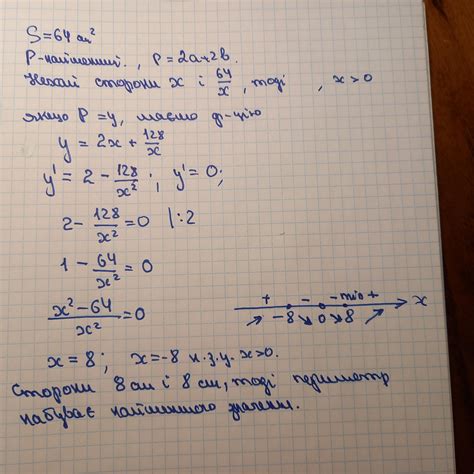 S=64 см²
P-найменший., P=2a+2b.
Нехай сторони x і 64/x, тоді , x>0
якщо P=y, маємо ф-цію
y = 2x + 128/x
y' = 2 - 128/x² ; y'=0;
2 - 128/x² = 0 |:2
1 - 64/x² = 0
(x²-64)/x² = 0
+ - - min + x
↗ -8 ↘ 0 ↘ 8 ↗
x = 8; x=-8 н.з.у. x>0.
Сторони 8 см і 8 см, тоді периметр
набуває найменшого значення.